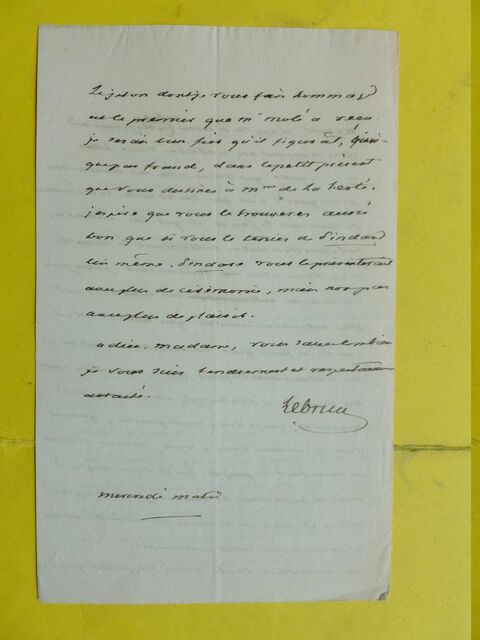 Le jeton dont je vous fais hommage
est le premier que mr molé a reçu.
je serais bien fier qu'il figurât, quoi-
que par fraude, dans le petit présent
que vous destinez à mme de la ferté.
j'espère que vous le trouverez aussi
bon que si vous le teniez de Pindare
lui même. Pindare vous le présenterait
avec plus de cérémonie, mais non pas
avec plus de plaisir.
adieu, madame, vous savez combien
je vous suis tendrement et respectueusement
attaché.
Lebrun
mercredi matin